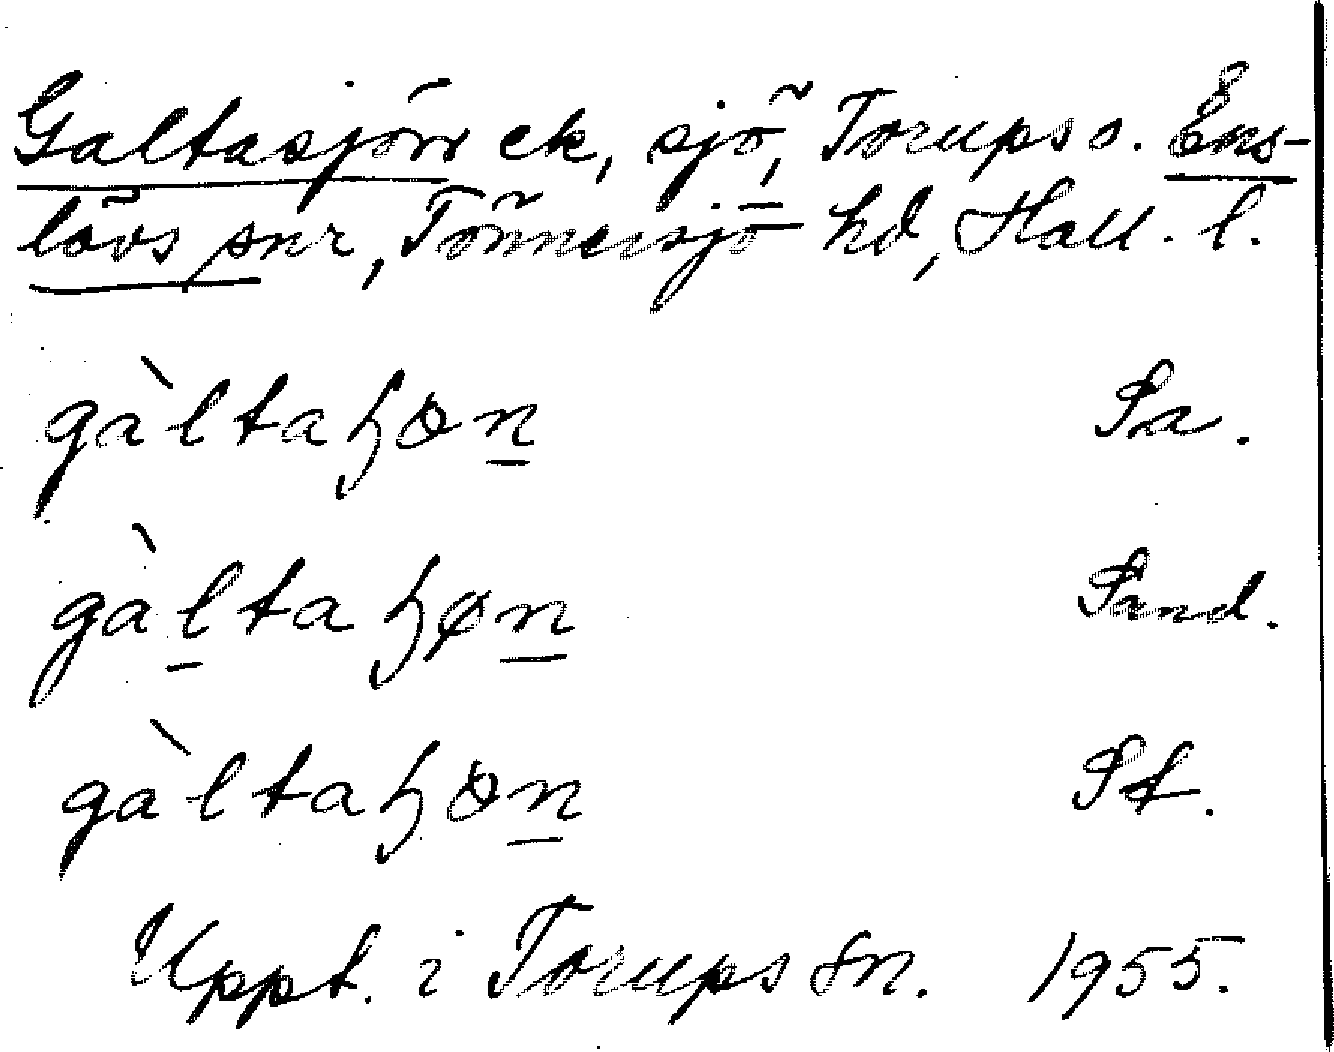 Galtasjön ek, sjö, Torups o. Ens-
lövs snr, Tönnersjö hd, Hall. l.
gàltaɧøn Pa.
gàltaɧøn Sand.
gàltaɧøn St.
Uppt. i Torups sn. 1955.